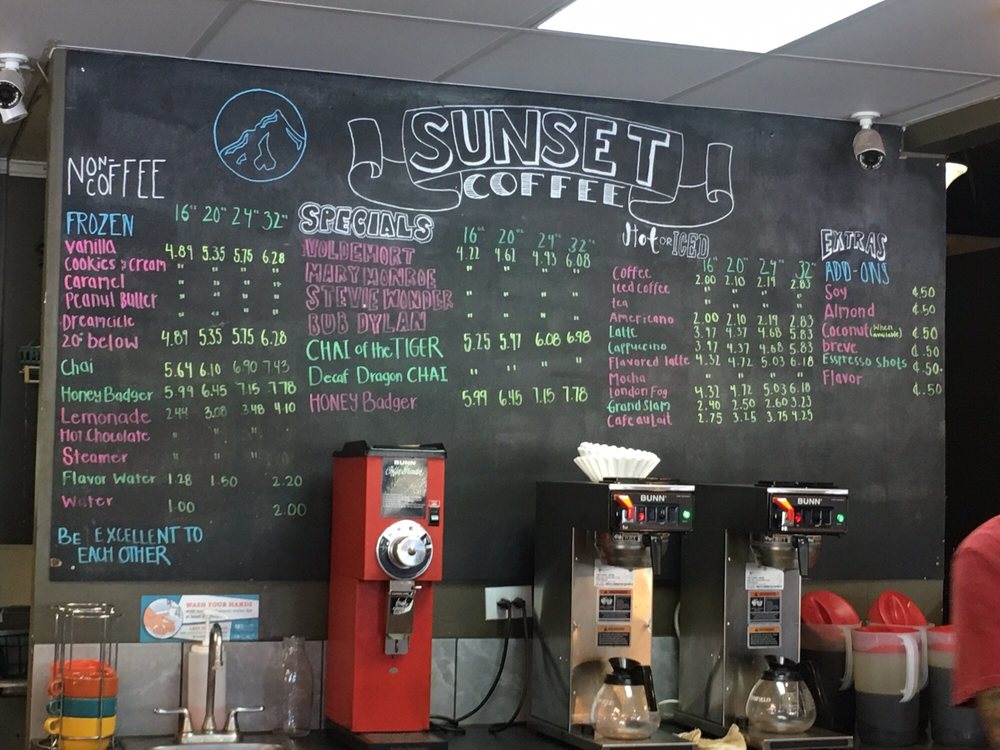 SUNSET
COFFEE
NON-COFFEE
FROZEN 16" 20" 24" 32"
Vanilla 4.89 5.35 5.75 6.28
Cookies & cream " " " "
Caramel " " " "
Peanut Butter " " " "
Dreamcicle
20° below 4.89 5.35 5.75 6.28
Chai 5.64 6.10 6.90 7.43
Honey Badger 5.99 6.45 7.15 7.78
Lemonade 2.44 3.08 3.48 4.10
Hot Chocolate " " "
Steamer " " "
Flavor Water 1.28 1.50 2.20
Water 1.00 2.00
BE EXCELLENT TO
EACH OTHER
SPECIALS 16" 20" 24" 32"
VOLDEMORT 4.22 4.61 4.93 6.08
MARY MONROE " " " "
STEVIE WONDER " " " "
BUB DYLAN " " " "
CHAI of the TIGER 5.25 5.97 6.08 6.98
Decaf Dragon CHAI " " " "
HONEY Badger 5.99 6.45 7.15 7.78
Hot OR ICED
16" 20" 24" 32"
Coffee 2.00 2.10 2.19 2.83
Iced Coffee " " " "
tea " " " "
Americano 2.00 2.10 2.19 2.83
Latte 3.97 4.37 4.68 5.83
Cappuccino 3.97 4.37 4.68 5.83
Flavored latte 4.32 4.72 5.03 6.18
Mocha " " " "
London Fog 4.32 4.72 5.03 6.18
Grand Slam 2.40 2.50 2.60 3.23
Cafe au Lait 2.75 3.25 3.75 4.25
EXTRAS
ADD-ONS
Soy ¢.50
Almond ¢.50
Coconut (When available) ¢.50
breve ¢.50
Esspresso Shots ¢.50
Flavor ¢.50
BUNN
BUNN
BUNN
WASH YOUR HANDS